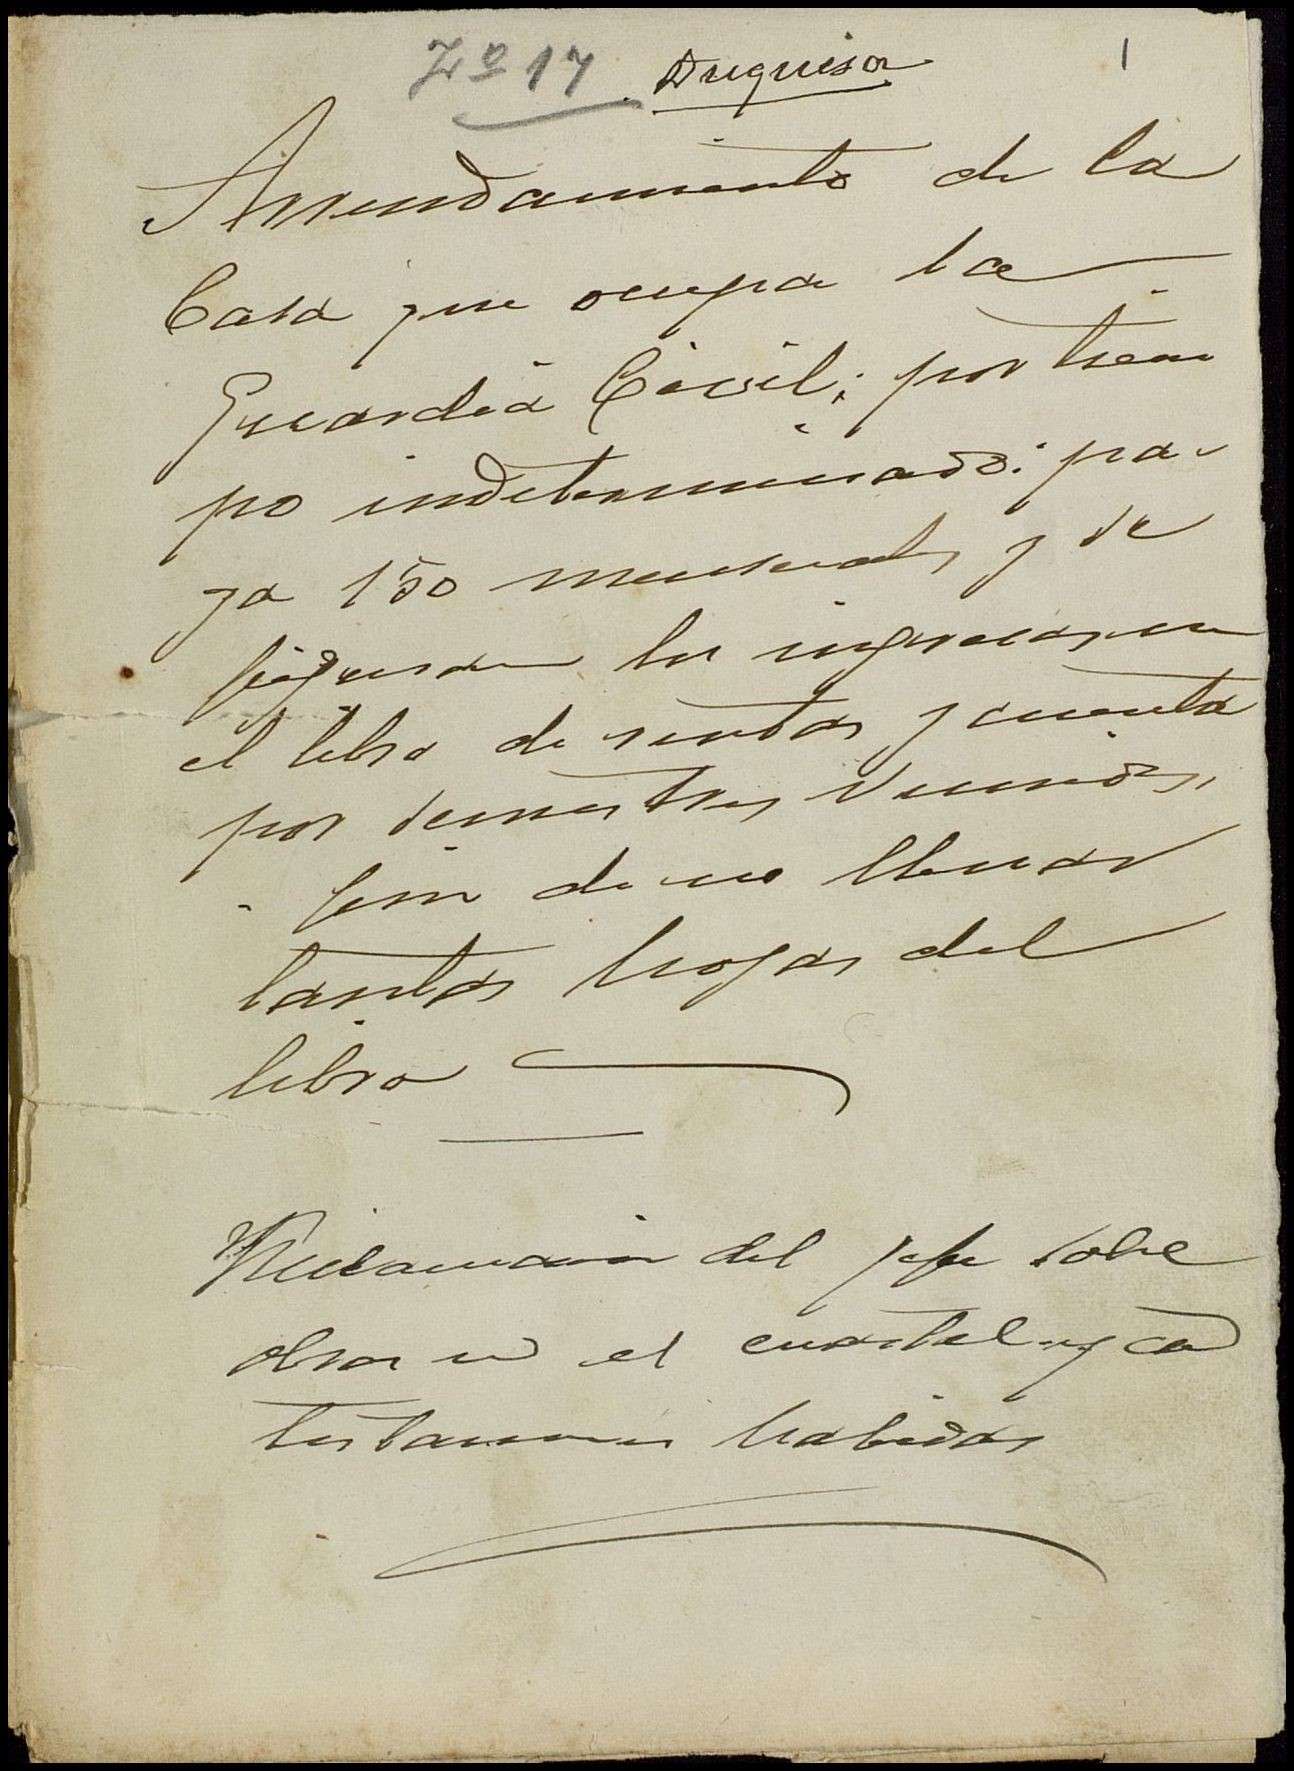 Lº 17 Duquesa 1
Arrendamiento de la
Casa que ocupa la
Guardia Civil; por tiem
po indeterminado: pa-
ga 150 mensuales y se
figuran los ingresos en
el libro de rentas y cuenta
por semestres vencidos,
fin de no llenar
tantas hojas del
libro
Reclamacion del Jefe sobre
obras en el cuartel y con
testaciones habidas